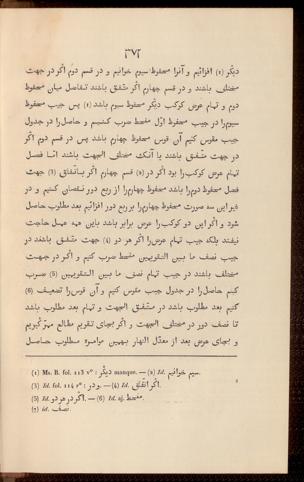 ٣٧٢
دیگر (1) افزائیم و آنرا محفوظ سیوم خوانیم و در قسم دوم اگر در جهت
مختلف باشند و در قسم چهارم اگر متفق باشند تفاضل میان محفوظ
دوم و تمام عرض کوکب دیگر محفوظ سیوم باشد (2) پس جیب محفوظ
سیوم را در جیب محفوظ اول منحط ضرب کنیم و حاصل را در جدول
جیب مقوس کنیم آن قوس محفوظ چهارم باشد پس در قسم دوم اگر
در جهت متفق باشند یا آنک مختلف الجهت باشند امّا فضل
تمام عرض کوکب را بود اگر در (3) قسم چهارم اگر باتفاق (3) جهت
فضل محفوظ دوم را باشد محفوظ چهارم را از ربع دور نقصان کنیم و در
غیر این سه صورت محفوظ چهارم را بر ربع دور افزائیم بعد مطلوب حاصل
شود و اگر این دو کوکب را عرض برابر باشد باین همه عمل حاجت
نیفتد بلکه جیب تمام عرض را اگر هر دو (4) جهت متفق باشند در
جیب نصف ما بین التقویمین منحط ضرب کنیم و اگر در جهت
مختلف باشند در جیب تمام نصف ما بین التقویمین (5) ضرب
کنیم حاصل را در جدول جیب مقوس کنیم و آن قوس را تضعیف (6)
کنیم بعد مطلوب باشد در متفق الجهت و تمام بعد مطلوب باشد
تا نصف دور در مختلف الجهت و اگر بجای تقویم مطالع ممر گیریم
و بجای عرض بعد از معدل النهار بهمین مؤامره مطلوب حاصل
(1) Ms. B. fol. 113 v° : دیگر manque. — (2) Id. سیم خوانیم.
(3) Id. fol. 114 r° : ودر. — (4) Id. اگر اتفاق.
(5) Id. اگر در هر دو. — (6) Id. aj. منحط.
(7) Id. نصف.